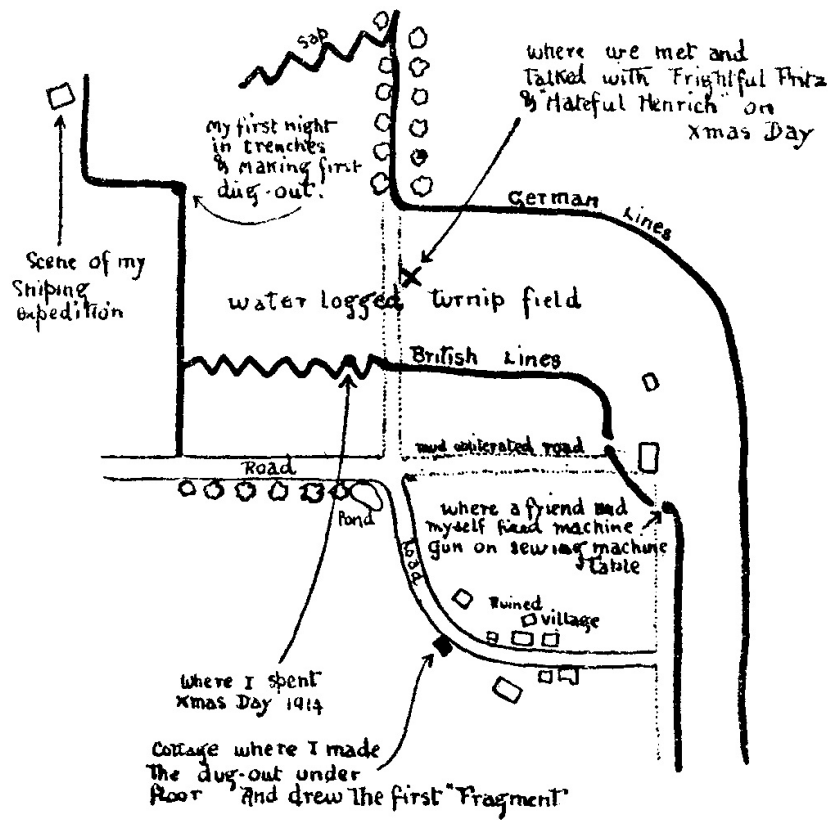 Sap
where we met and
talked with "Frightful Fritz
& "Hateful Henrich" on
Xmas Day
My first night
in trenches
& making first
dug-out.
German Lines
Scene of my
Sniping
Expedition
water logged turnip field
British Lines
mud obliterated road
Road
Pond
where a friend and
myself fixed machine
gun on sewing machine
table
Road
Ruined
village
where I spent
Xmas Day 1914
Cottage where I made
The dug-out under
floor "And drew The first "Fragment"